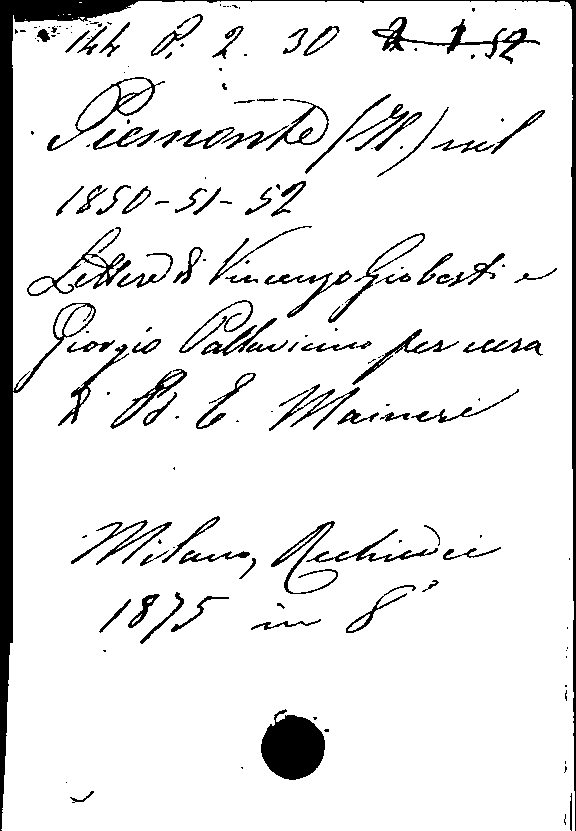 144 P. 2. 30 2. I. 52
Piemonte (Il) nel
1850-51-52
Lettere di Vincenzo Gioberti e
Giorgio Pallavicino per cura
di B. E. Maineri
Milano, Rechiedei
1875 in 8°